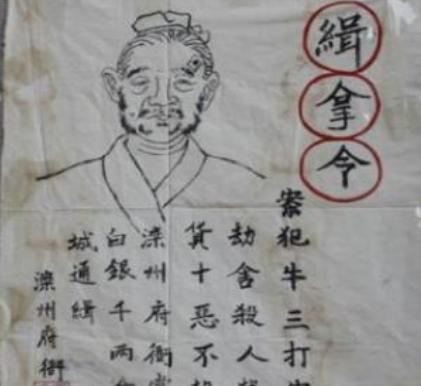 緝拿令
案犯牛三打
劫舍殺人
貨十惡不
灤州府衙
白銀千兩
城通緝
灤州府衙